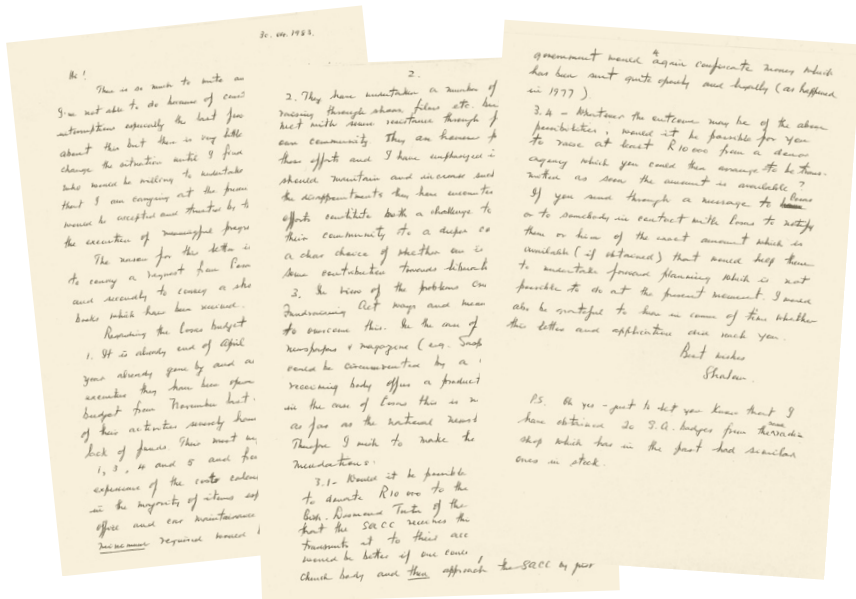 30.04.1983.
Hi!
There is so much to write an
I'm not able to do because of
interruptions especially the last few
about this but there is very little
change the situation until I find
who would be willing to undertake
that I am carrying out at the
would be accepted and trusted by t
the execution of meaningful
The reason for this letter is
to convey a request from
and secondly to convey a
books which have been received.
Regarding the Cosas budget
1. It is already end of April
year already gone by and
executive they have been
budget from November last.
of their activities severely
lack of funds. Their most
1, 3, 4 and 5 and
experience of the costs
in the majority of items
office and car maintenance
minimum required would b
2.
2. They have undertaken a number of
raising through shows films etc. but
met with some resistance through
own community. They
these efforts and I have emphasized
should maintain and increase such
the disappointments they have
efforts constitute both a challenge to
their community to a deeper co
a clear choice of whether one is
some contribution towards
3. In view of the problems
Fundraising Act ways and mean
to overcome this. In the case of
newspapers & magazine (e.g.
could be circumvented by a
receiving body offers a product
in the case of Cosas this is n
as far as the national
Therefore I wish to make the
mendations.
3.1 - Would it be possible
to donate R10 000 to the
Bish. Desmond Tutu of the
that the SACC receives the
transmits it to their acc
would be better if one could
church body and then approach the SACC by
government would again confiscate money which
has been sent quite openly and legally (as happened
in 1977)
3.2 - Whatever the outcome may be of the above
possibilities, would it be possible for you
to raise at least R10 000 from a donor
agency which you could then arrange to be trans-
mitted as soon the amount is available?
If you send through a message to Cosas
or to somebody in contact with Cosas to notify
them or him of the exact amount which is
available (if obtained) that would help them
to undertake forward planning which is not
possible to do at the present moment. I would
also be grateful to know in course of time whether
this letter and application did reach you.
Best wishes
Shalom.
P.S. Oh yes - just to let you know that I
have obtained 20 S.A. badges from the
shop which has in the past had similar
ones in stock.